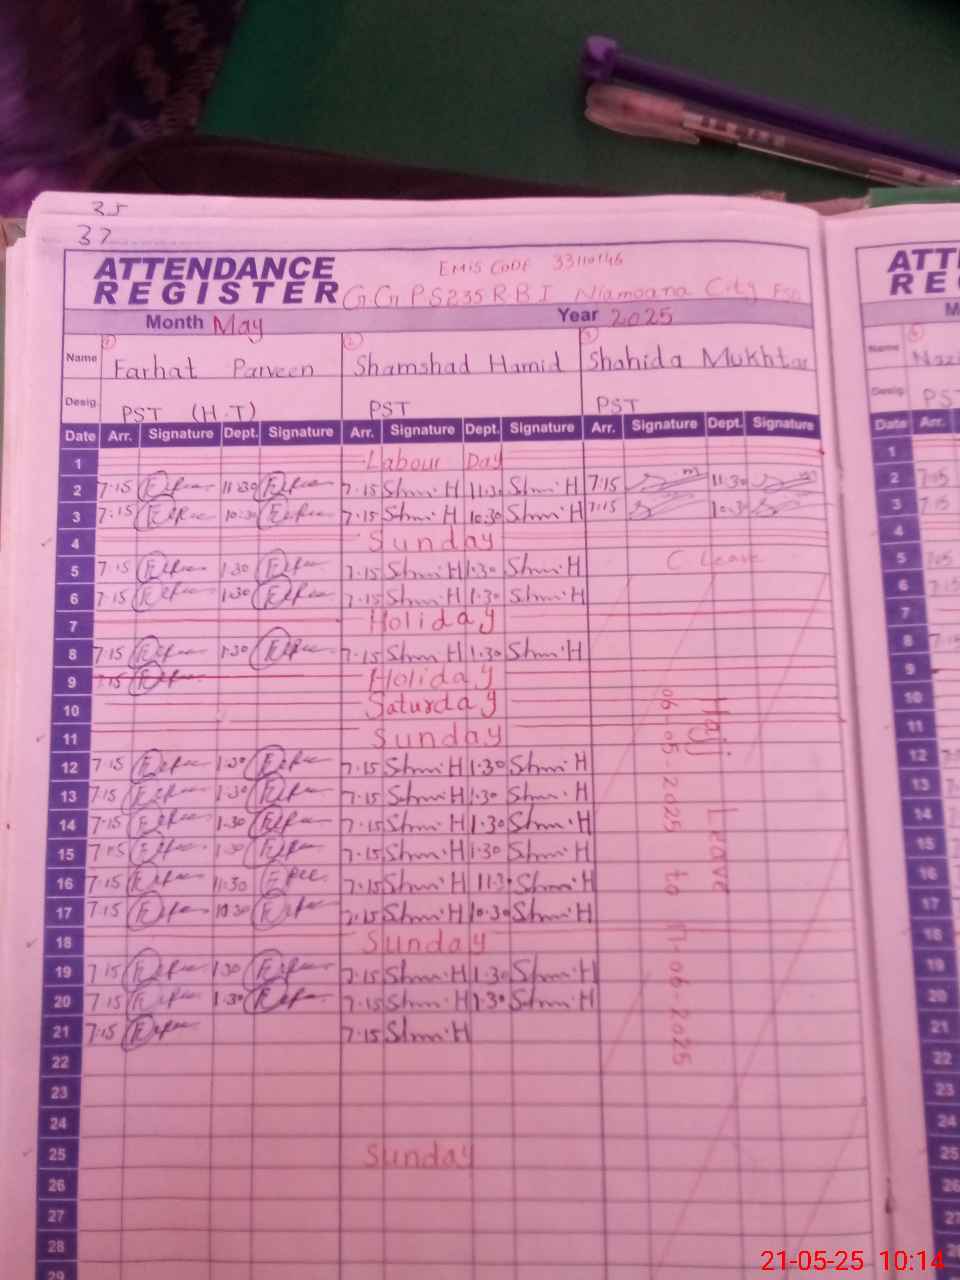 37
ATTENDANCE REGISTER
EMIS CODE 33110146
G.G P S 235 R.B I Niamoana City FSD
Month May Year 2025
Name Farhat Parveen Shamshad Hamid Shahida Mukhtar
Desig. PST (H.T) PST PST
Date Arr. Signature Dept. Signature Arr. Signature Dept. Signature Arr. Signature Dept. Signature
1 Labour Day
2 7.15 11:30 7.15 Shm.H 11.30 Shm.H 7:15 11.30
3 7:15 10:30 7.15 Shm.H 10.30 Shm.H 7:15 10.30
4 Sunday
5 7.15 1.30 7.15 Shm.H 1.30 Shm.H C Leave
6 7.15 1.30 7.15 Shm.H 1.30 Shm.H
7 Holiday
8 7.15 1.30 7.15 Shm H 1.30 Shm.H
9 7.15 Holiday
10 Saturday
11 Sunday
12 7.15 1.30 7.15 Shm.H 1.30 Shm.H
13 7.15 1.30 7.15 Shm.H 1.30 Shm.H
14 7.15 1.30 7.15 Shm.H 1.30 Shm.H
15 7.15 1.30 7.15 Shm.H 1.30 Shm.H
16 7.15 11:30 7.15 Shm.H 11.3 Shm.H
17 7.15 10.30 7.15 Shm.H 10.30 Shm.H
18 Sunday
19 7.15 1.30 7.15 Shm.H 1.30 Shm.H
20 7.15 1.30 7.15 Shm.H 1.30 Shm.H
21 7.15 7.15 Shm.H
22
23
24
25 Sunday
26
27
28
29
Hajj Leave
06-05-2025 to 17-06-2025
ATT
RE
Name Nazi
Desig. PS
Date Arr.
1
2 7:05
3 7.15
4
5 7.05
6 7.15
7
8
9
10
11
12
13
14
15
16
17
18
19
20
21
22
23
24
25
26
27
21-05-25 10:14